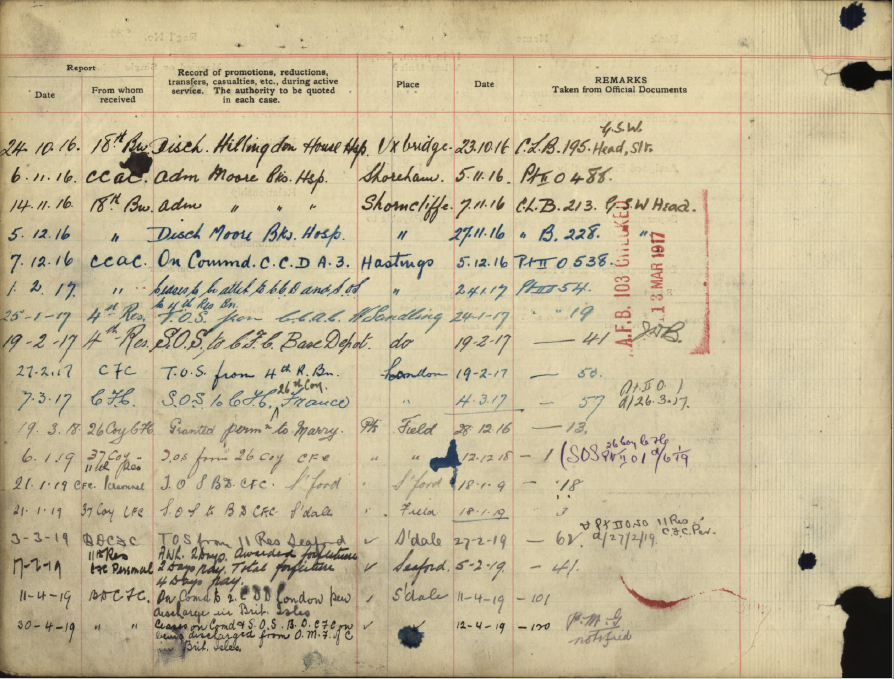 Report
Date
From whom received
Record of promotions, reductions, transfers, casualties, etc., during active service. The authority to be quoted in each case.
Place
Date
REMARKS
Taken from Official Documents
G.S.W.
24.10.16. 18th Bn. Disch. Hillingdon House Hsp. Uxbridge. 23.10.16 C.L.B. 195. Head, Slt.
6.11.16. CCAC. adm Moore Bks. Hsp. Shoreham. 5.11.16. Pt II O 488.
14.11.16. 18th Bn. adm " " " Shorncliffe. 7.11.16 C.L.B. 213. G.S.W Head.
5.12.16 " Disch Moore Bks. Hosp. " 27.11.16 " B. 228. "
7.12.16 CCAC. On Commd. C.C.D A.3. Hastings 5.12.16 Pt II O 538.
1.2.17. " ceases to be attch. to " 24.1.17 Pt II 54.
to 4th Res Bn.
25-1-17 4th Res. T.O.S. from W Sandling 24-1-17 " 19
19-2-17 4th Res. S.O.S. to C.F.C. Base Depot. do 19-2-17 — 41
A.F.B. 103 CHECKED
13 MAR 1917
27.2.17 CFC T.O.S. from 4th R. Bn. London 19-2-17 — 50.
26th Coy.
7.3.17 C.F.C. S.O.S. to C.F.C, France " 4.3.17 — 57
Pt. II O. 1
d/26.3.17.
19.3.18 26 Coy CFC Granted permn to Marry. Field 28.12.16 — 13.
6.1.19 37 Coy - T.O.S from 26 Coy CFC " " 12.12.18 — 1 (SOS 26 Coy CFC Pt II O 1 d/6/1/19
11th Res
21.1.19 CFC Personnel S'ford " S'ford 18-1-9 — 18
21.1.19 37 Coy CFC S.O.S to BD CFC S'dale " Field 18-1-19 3
3-3-19 BDCFC TOS from 11 Res Seaford S'dale 27-2-19 — 62.
Pt II O 50 11 Res
d/27/2/19. C.F.C. Per.
11th Res CFC Personal AWL. 2 Days. Awarded forfeiture
2 Days pay. Total forfeiture Seaford. 5-2-19 — 41.
4 Days pay.
11-4-19 BDCFC. On Comd to 2 C.D.D London pen S'dale 11-4-19 — 101
discharge in Brit. Isles
30-4-19 " " Ceases on Comd & S.O.S. B.D. C.F.C on 12-4-19 — 120
being discharged from O.M.F. of C
in Brit. Isles.
P.M.G
notified